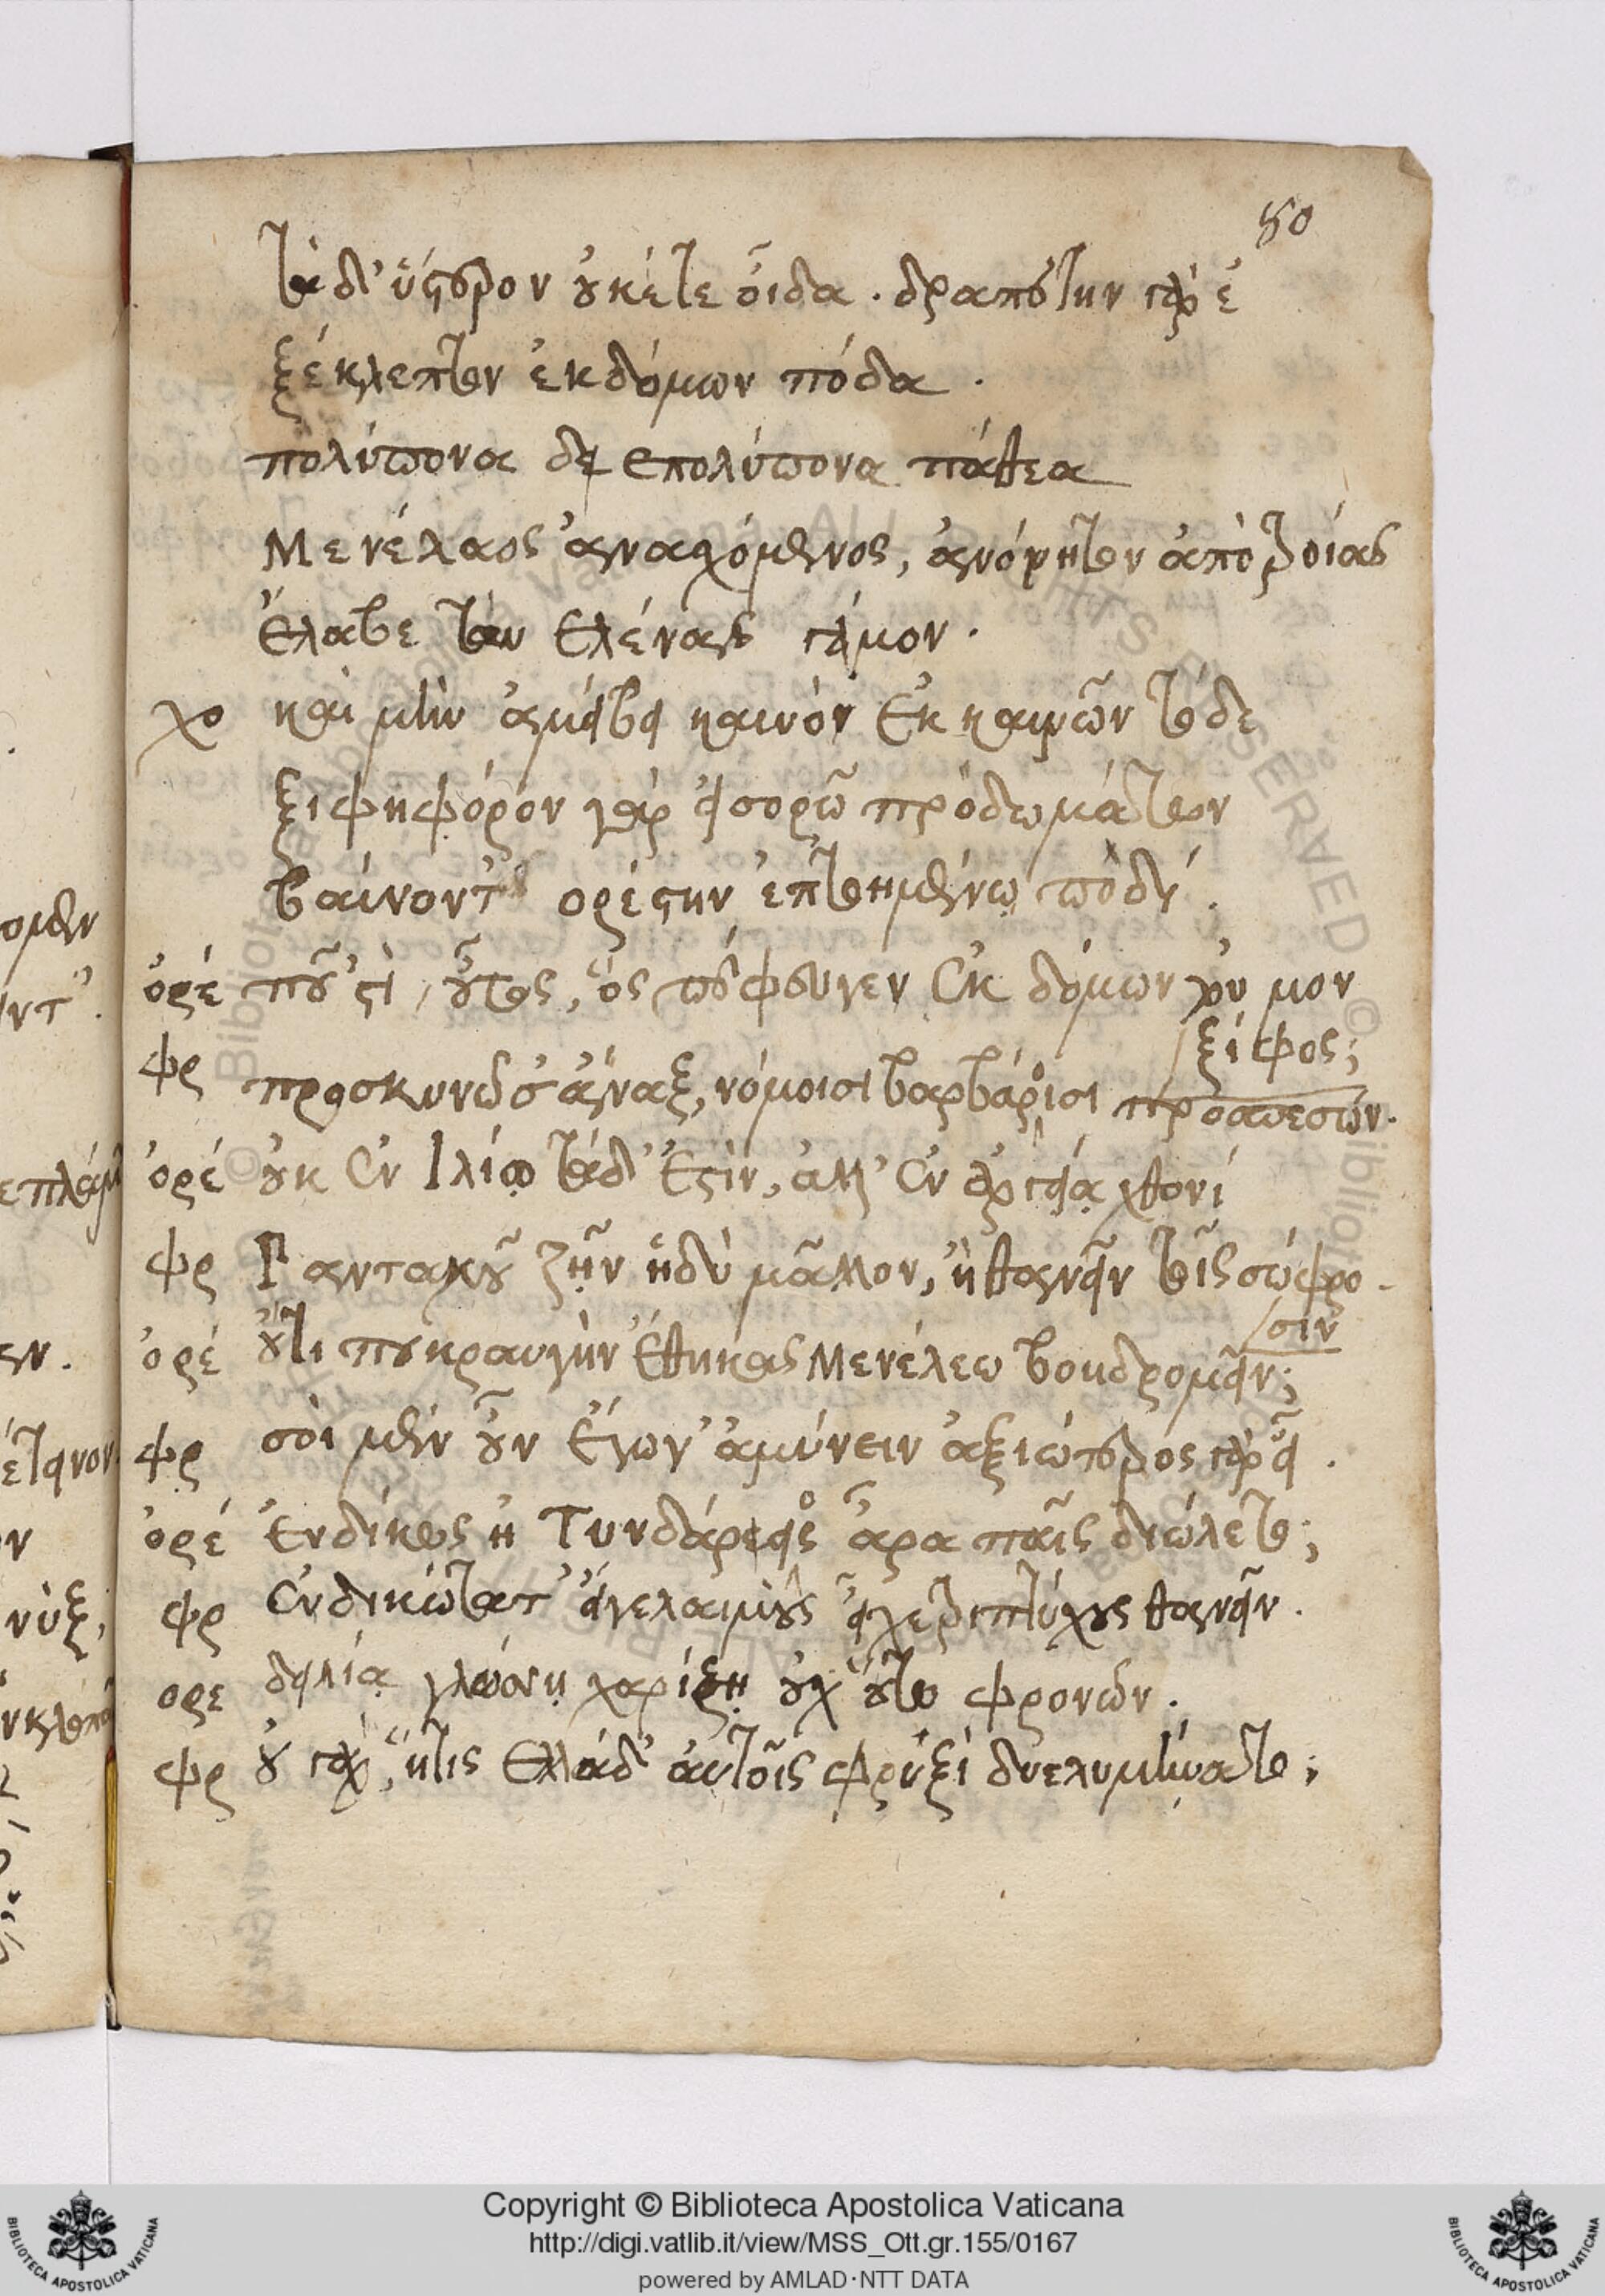 50
τὰ δ' ὕστερον οὐκέτε οἶδα. δραπέτην γὰρ ἐ
ξέκλεπτον ἐκ δόμων πόδα.
πολύπονα δὲ πολύπονα πάθεα
Μενέλαος ἀνασχόμενος, ἀνόνητον ἀπὸ τροίας
ἔλαβε τὸν ἑλένας γάμον.
χο καὶ μὴν ἀμείβει καινὸν ἐκ καινῶν τόδε
ξιφηφόρον γὰρ εἰσορῶ πρὸ δωμάτων
βαίνοντ' ορέστην ἐπτοημένῳ ποδί.
ὀρέ ποῦ 'στὶ οὗτος, ὃς πέφευγεν ἐκ δόμων τοὐμὸν
ξίφος;
φρ προσκυνῶ σ' ἄναξ, νόμοισι βαρβάροισι προσπεσών.
ὀρέ οὐκ ἐν Ιλίῳ τάδ' ἐστὶν, ἀλλ' ἐν ἀργείᾳ χθονί
φρ Πανταχοῦ ζῆν ἡδὺ μᾶλλον, ἢ θανεῖν τοῖς σώφρο-
σιν
ὀρέ οὔτι που κραυγὴν ἔθηκας Μενέλεω βοηδρομεῖν;
φρ σοὶ μὲν οὖν ἔγωγ' ἀμύνειν ἀξιώτερος γὰρ εἶ.
ὀρέ ἐνδίκως ἡ Τυνδάρειος ἆρα παῖς διώλετο;
φρ ἐνδικώτατ' εἴγε λαιμοὺς εἶχε τριπτύχους θανεῖν.
ορε δειλίᾳ γλώσσῃ χαρίζῃ οὐχ οὕτω φρονῶν.
φρ οὐ γὰρ, ἥτις Ελλάδ' αὐτοῖς φρυξὶ διελυμήνατο;
ομεν
ντ'.
εν.
έτεινον
ν
νὺξ,
Copyright © Biblioteca Apostolica Vaticana
http://digi.vatlib.it/view/MSS_Ott.gr.155/0167
powered by AMLAD·NTT DATA
BIBLIOTECA APOSTOLICA VATICANA
BIBLIOTECA APOSTOLICA VATICANA